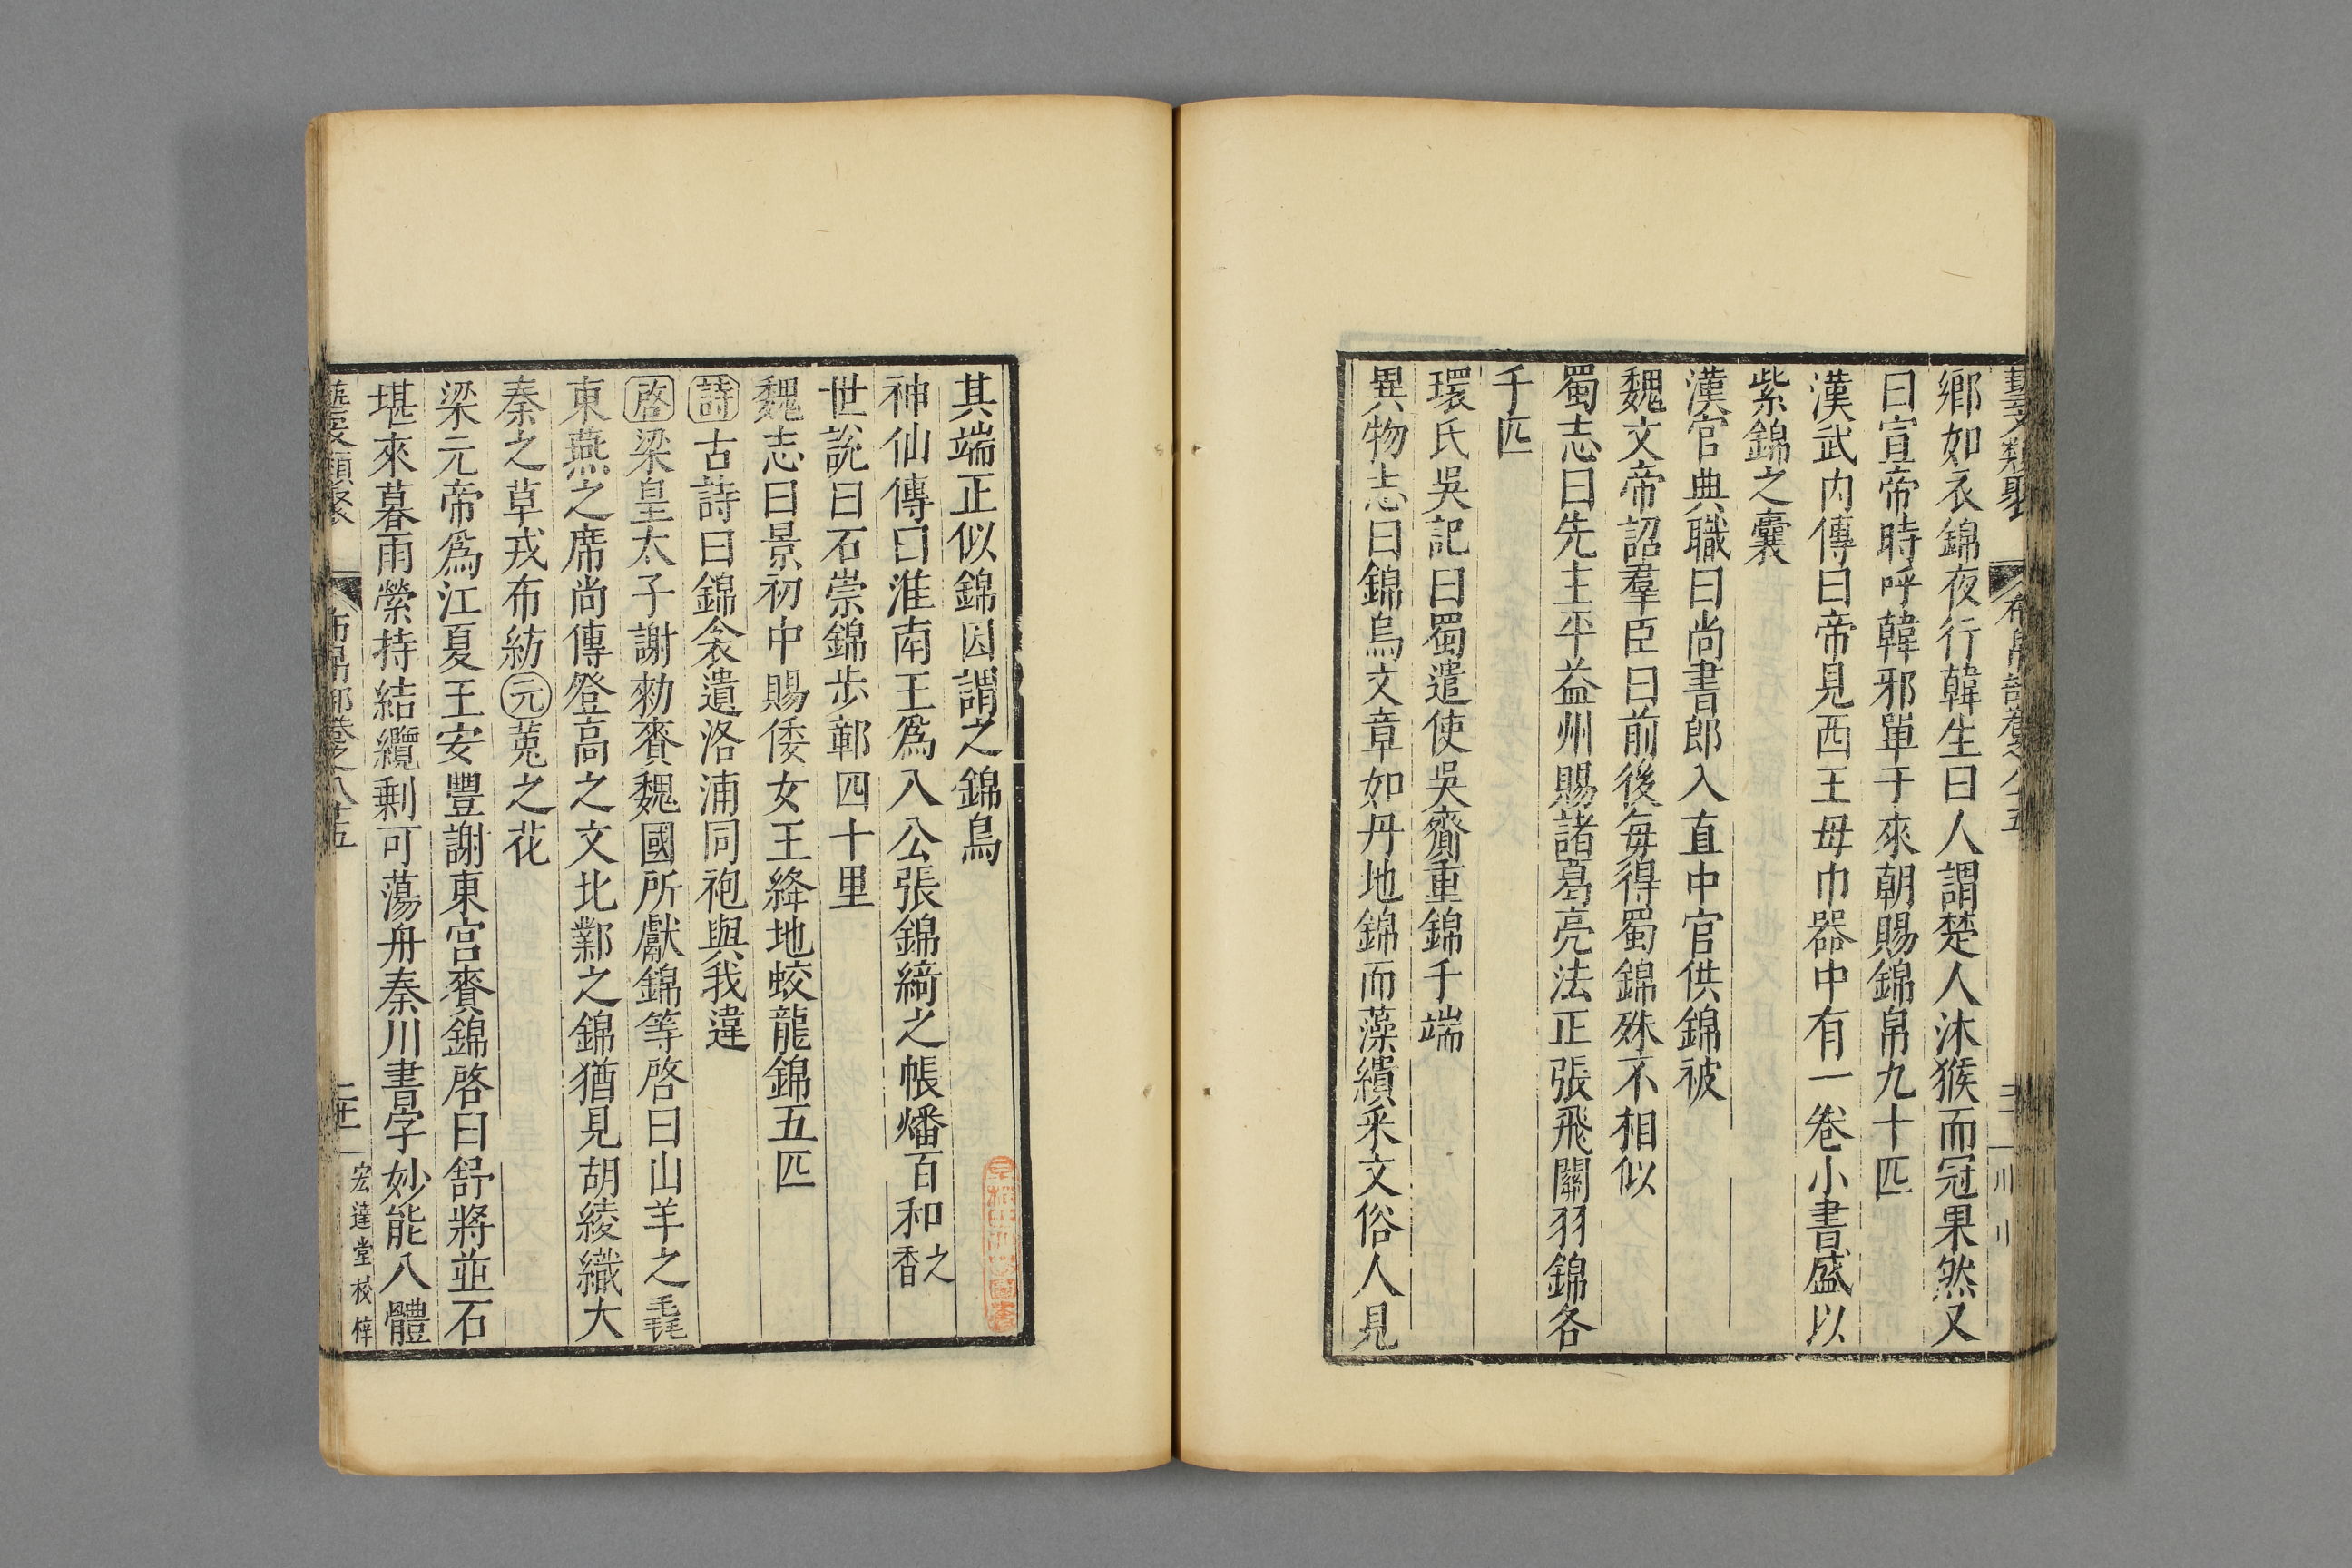 藝文類聚 布帛部卷之八十五
鄉如衣錦夜行韓生曰人謂楚人沐猴而冠果然又
曰宣帝時呼韓邪單于來朝賜錦帛九十匹
漢武內傳曰帝見西王母巾器中有一卷小書盛以
紫錦之囊
漢官典職曰尚書郎入直中官供錦被
魏文帝詔羣臣曰前後每得蜀錦殊不相似
蜀志曰先主平益州賜諸葛亮法正張飛關羽錦各
千匹
環氏吳記曰蜀遣使吳齎重錦千端
異物志曰錦鳥文章如丹地錦而藻繢采文俗人見
其端正似錦因謂之錦鳥
神仙傳曰淮南王為八公張錦綺之帳燔百和之香
世說曰石崇錦步鄣四十里
魏志曰景初中賜倭女王絳地蛟龍錦五匹
詩古詩曰錦衾遺洛浦同袍與我違
啓梁皇太子謝勑賚魏國所獻錦等啓曰山羊之毳
東燕之席尚傳登高之文北鄴之錦猶見胡綾織大
秦之草戎布紡元菟之花
梁元帝為江夏王安豐謝東宮賚錦啓曰舒將並石
堪來暮雨縈持結纜剩可蕩舟秦川書字妙能八體
藝文類聚 布帛部卷之八十五 宏達堂校梓